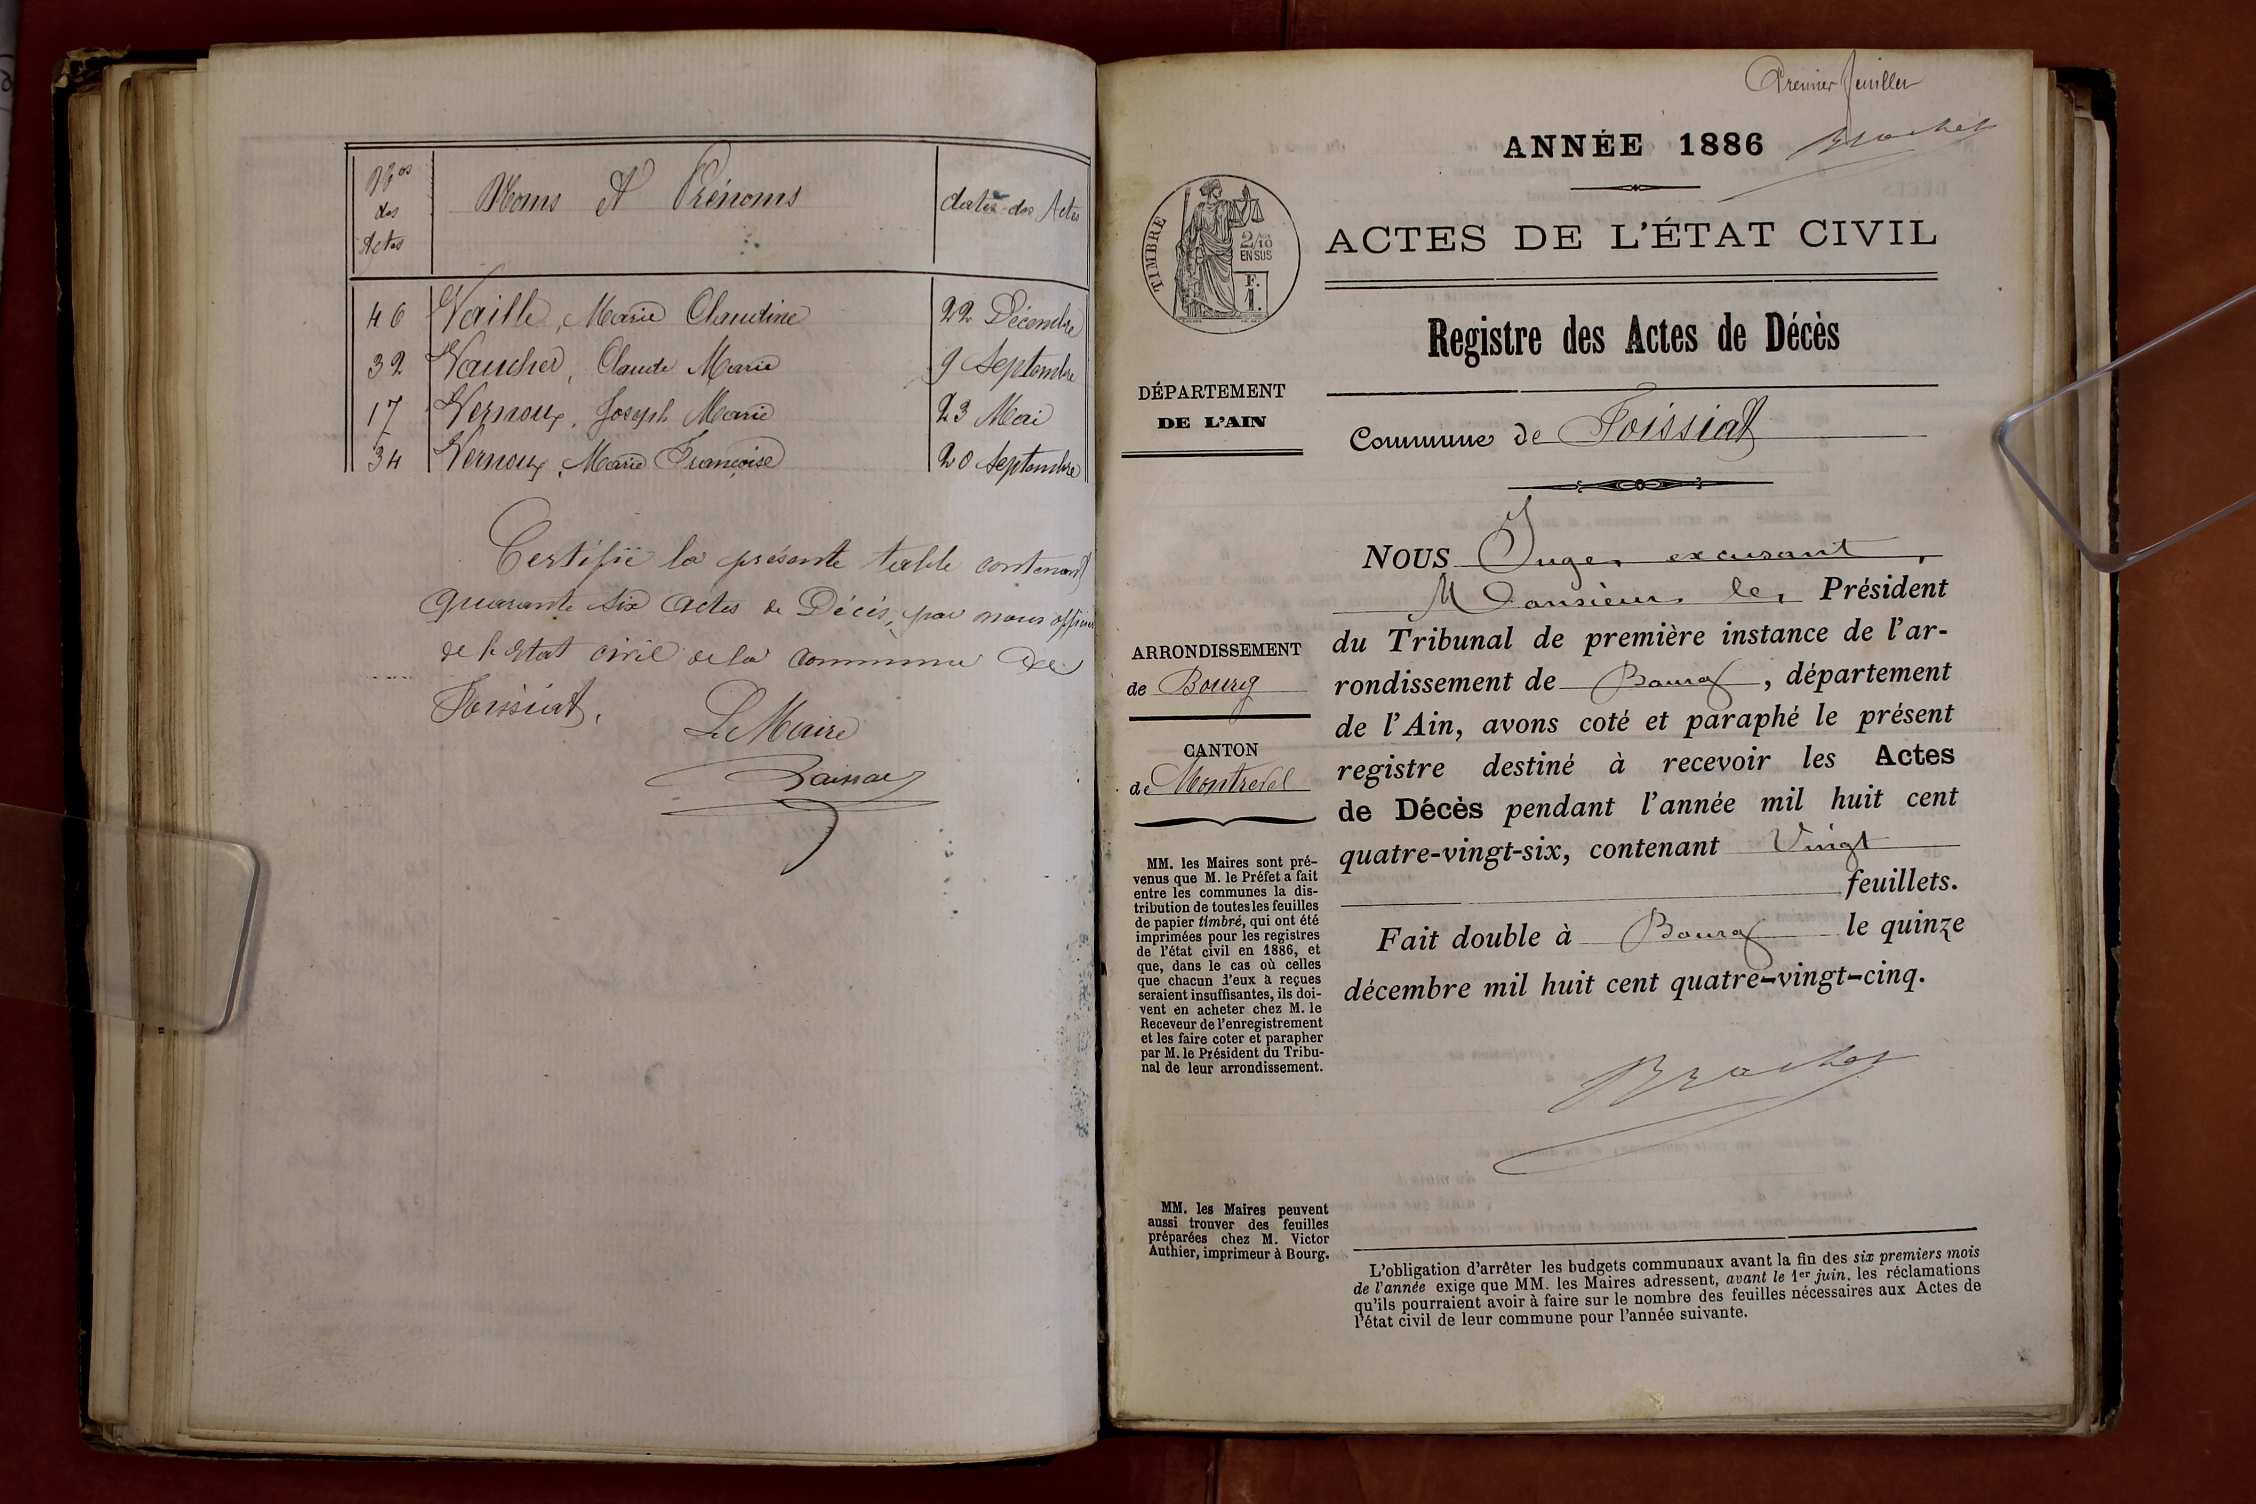 Nos des Actes
Noms et Prénoms
dates des Actes
46 Vaille, Marie Claudine 22 Décembre
32 Vaucher, Claude Marie 9 Septembre
17 Vernoux, Joseph Marie 23 Mai
34 Vernoux, Marie Françoise 20 Septembre
Certifié la présente table contenant
quarante six actes de Décès, par nous officier
de l'Etat civil de la commune de
Foissiat.
Le Maire
Premier feuillet
ANNÉE 1886
Brochet
TIMBRE
2/10
EN SUS
F.
1.
ACTES DE L'ÉTAT CIVIL
Registre des Actes de Décès
DÉPARTEMENT
DE L'AIN
Commune de Foissiat
ARRONDISSEMENT
de Bourg
CANTON
de Montrevel
MM. les Maires sont pré-
venus que M. le Préfet a fait
entre les communes la dis-
tribution de toutes les feuilles
de papier timbré, qui ont été
imprimées pour les registres
de l'état civil en 1886, et
que, dans le cas où celles
que chacun d'eux à reçues
seraient insuffisantes, ils doi-
vent en acheter chez M. le
Receveur de l'enregistrement
et les faire coter et parapher
par M. le Président du Tribu-
nal de leur arrondissement.
MM. les Maires peuvent
aussi trouver des feuilles
préparées chez M. Victor
Authier, imprimeur à Bourg.
NOUS Juge, excusant,
Monsieur le, Président
du Tribunal de première instance de l'ar-
rondissement de Bourg, département
de l'Ain, avons coté et paraphé le présent
registre destiné à recevoir les Actes
de Décès pendant l'année mil huit cent
quatre-vingt-six, contenant Vingt
feuillets.
Fait double à Bourg le quinze
décembre mil huit cent quatre-vingt-cinq.
Brochet
L'obligation d'arrêter les budgets communaux avant la fin des six premiers mois
de l'année exige que MM. les Maires adressent, avant le 1er juin, les réclamations
qu'ils pourraient avoir à faire sur le nombre des feuilles nécessaires aux Actes de
l'état civil de leur commune pour l'année suivante.